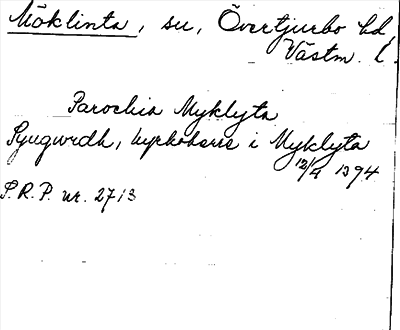 Möklinta, su, Övertjurbo hd,
Västm. l.
Parochia Myklyta
Syugwrdh, kyrkoherre i Myklyta
12/4 1394
S.R.P. nr. 2713